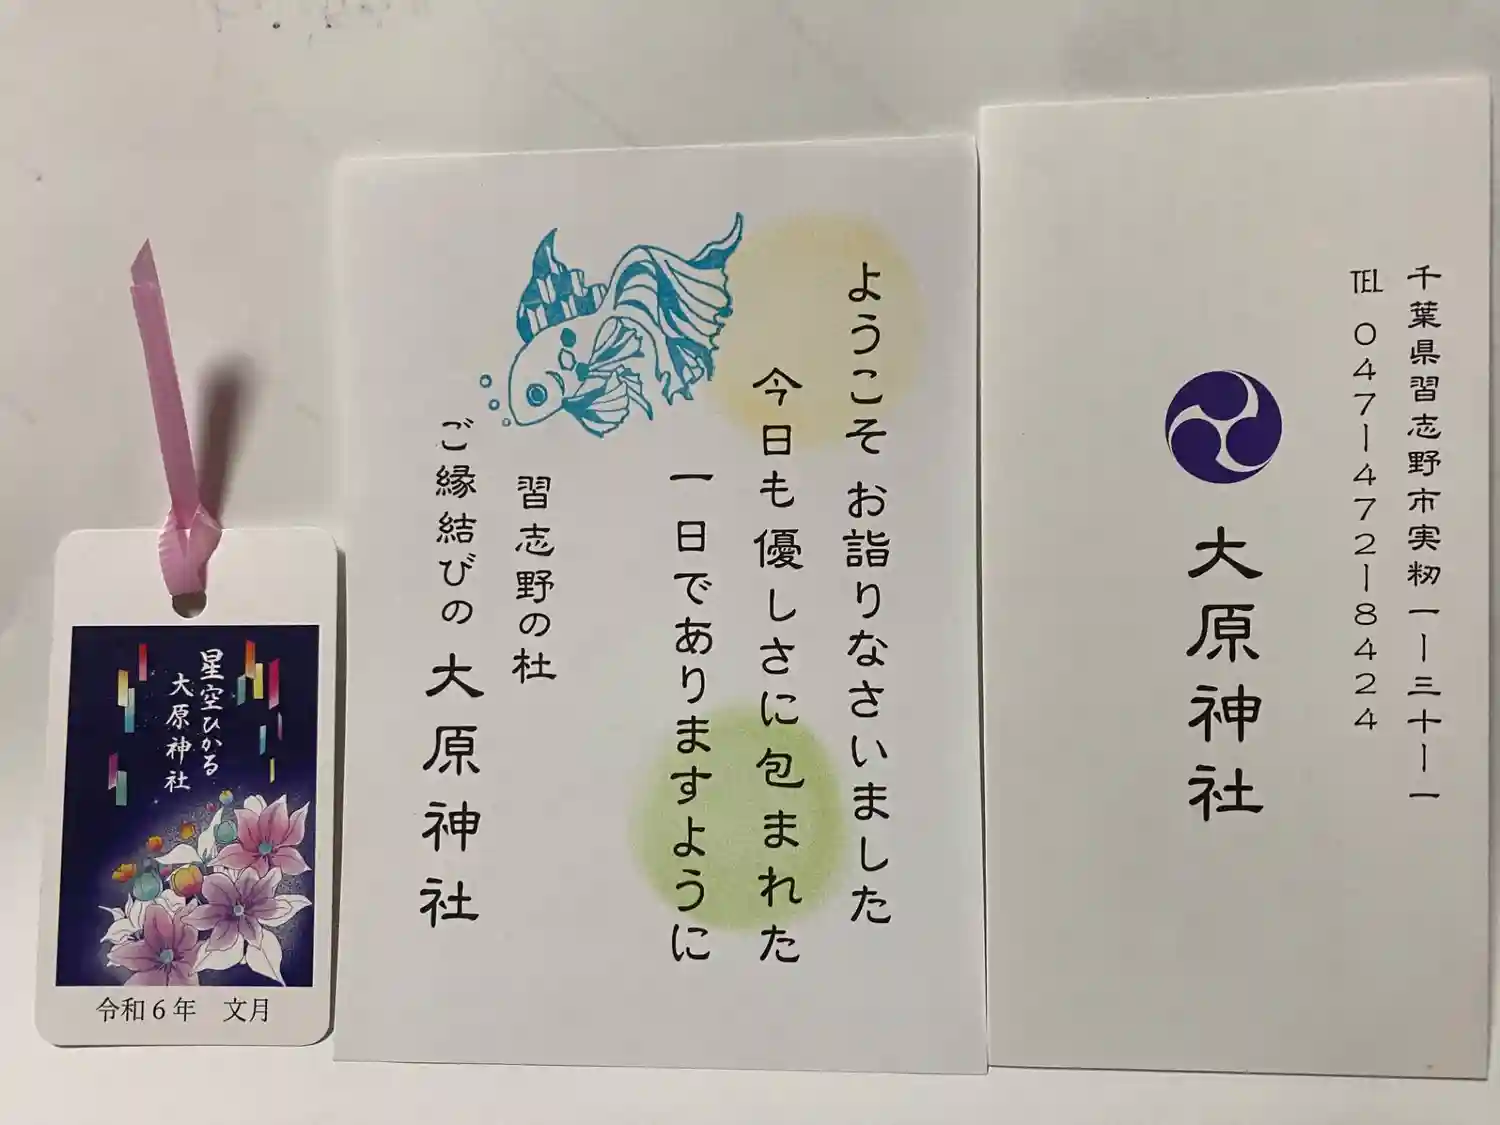 星空ひかる
大原神社
令和6年 文月
ようこそ お詣りなさいました
今日も優しさに包まれた
一日でありますように
習志野の杜
ご縁結びの 大原神社
千葉県習志野市実籾一ー三十ー一
TEL 047ー472ー8424
大原神社